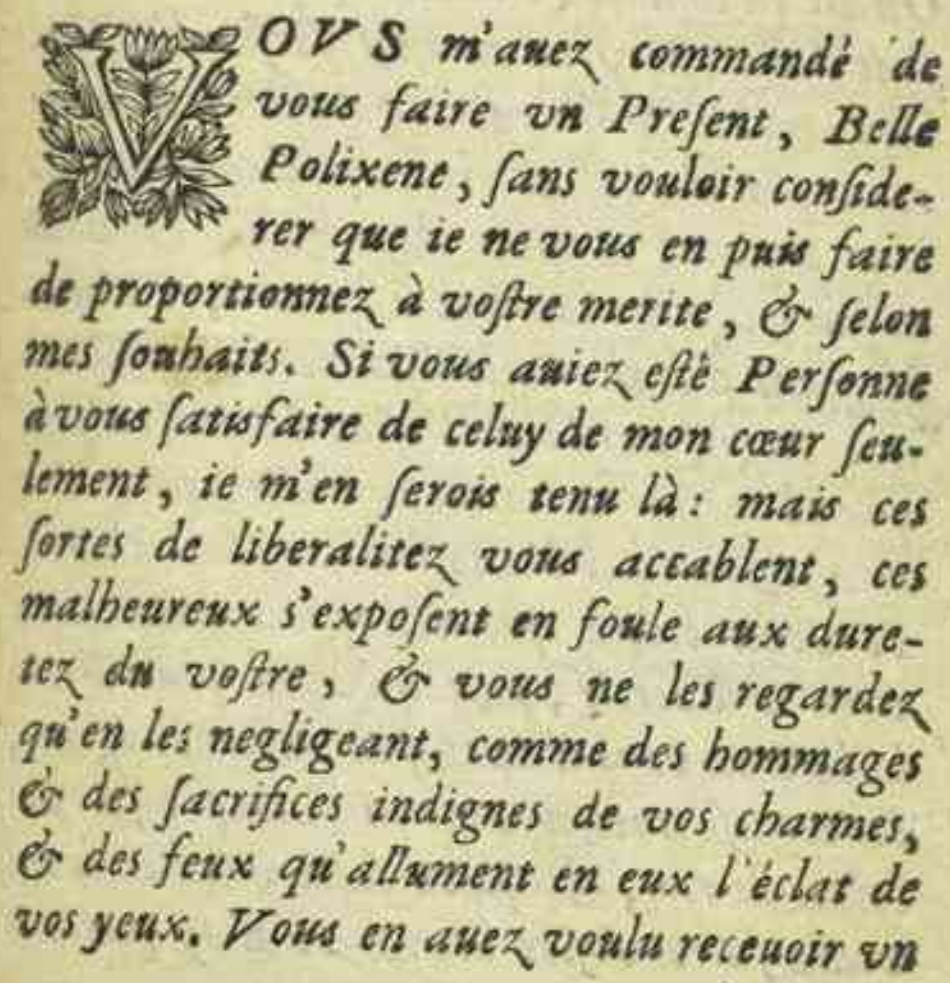 VOVS m'auez commandé de
vous faire vn Preſent, Belle
Polixene, ſans vouloir conſide-
rer que ie ne vous en puis faire
de proportionnez à voſtre merite, & ſelon
mes ſouhaits. Si vous auiez eſté Perſonne
à vous ſatisfaire de celuy de mon cœur ſeu-
lement, ie m'en ſerois tenu là: mais ces
ſortes de liberalitez vous accablent, ces
malheureux s'expoſent en foule aux dure-
tez du voſtre, & vous ne les regardez
qu'en les negligeant, comme des hommages
& des ſacrifices indignes de vos charmes,
& des feux qu'allument en eux l'éclat de
vos yeux. Vous en auez voulu receuoir vn